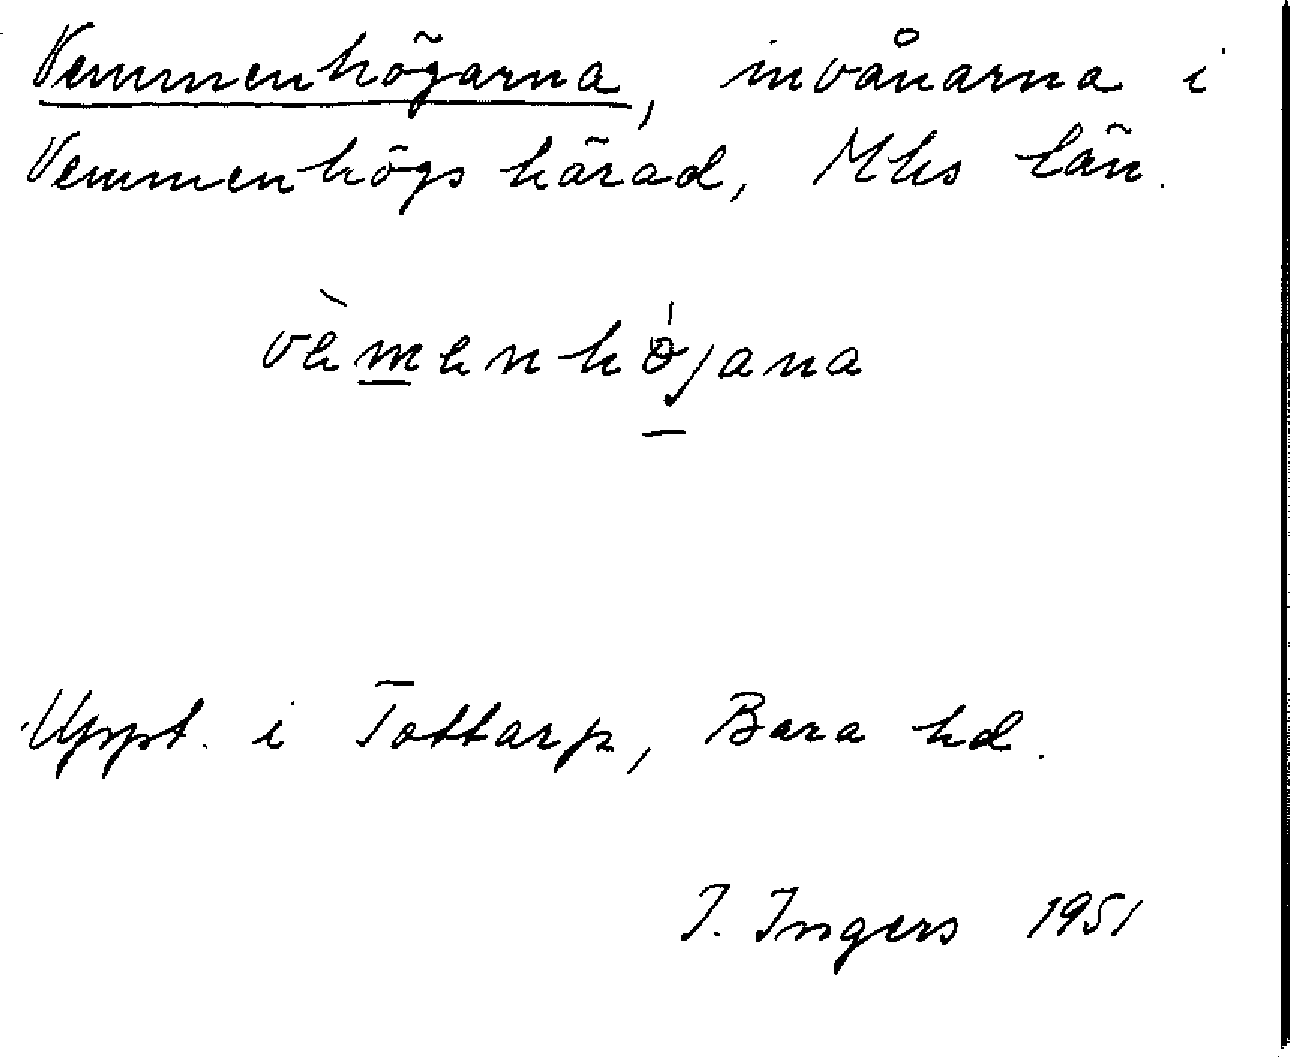 Vemmenhögarna, invånarna i
Vemmenhögs härad, Mhs län.
vèmenhǿjana
Uppt. i Tottarp, Bara hd.
I. Ingers 1951